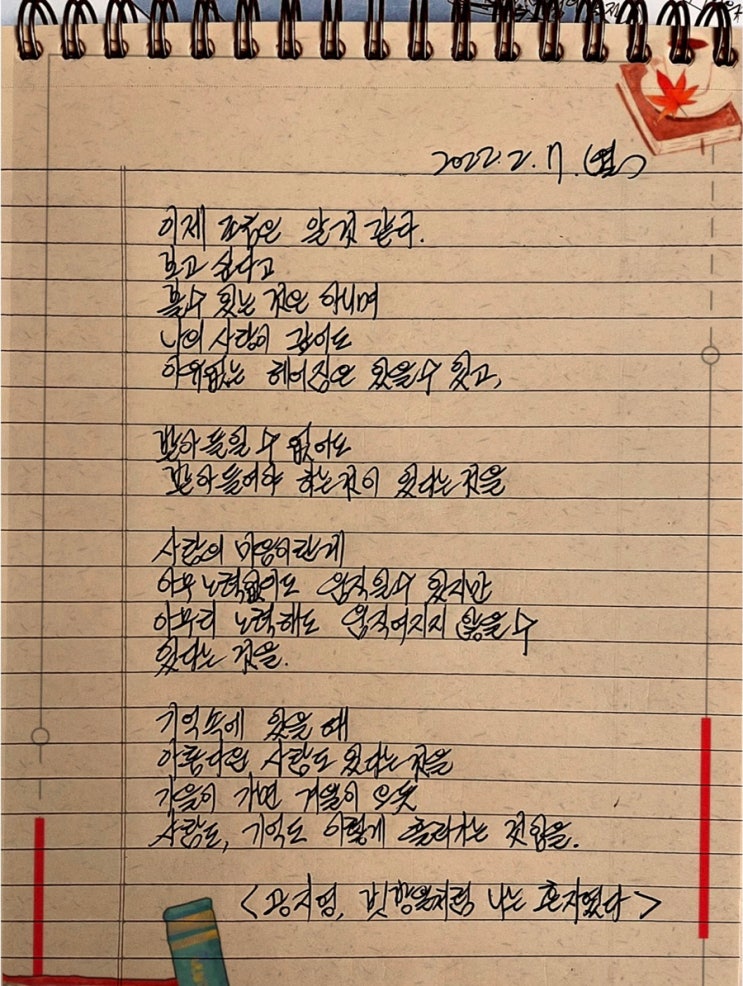 2022. 2. 7. (월)
이제 조금은 알 것 같다.
보고 싶다고
볼 수 있는 것은 아니며
나의 사랑이 깊어도
이유없는 헤어짐은 있을 수 있고,
받아들일 수 없어도
받아들여야 하는 것이 있다는 것을
사람의 마음이란 게
아무 노력없이도 움직일 수 있지만
아무리 노력해도 움직여지지 않을 수
있다는 것을.
기억 속에 있을 때
아름다운 사람도 있다는 것을
가을이 가면 겨울이 오듯
사람도, 기억도 이렇게 흘러가는 것임을.
<공지영, 빗방울처럼 나는 혼자였다>